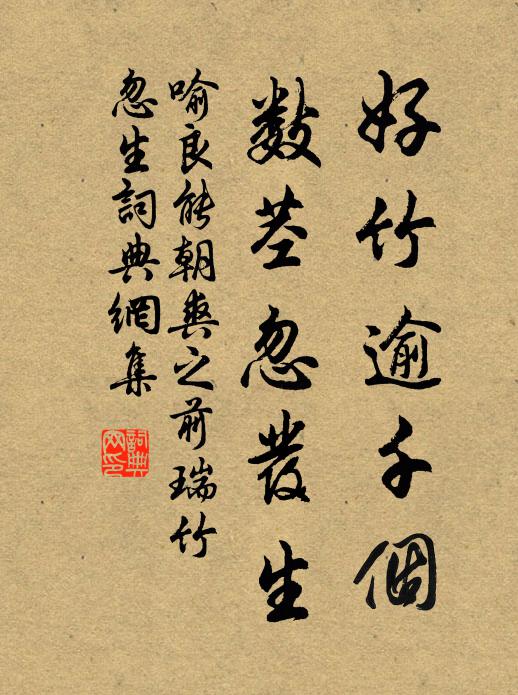 好竹逾千個
數莖忽發生
喻良能朝爽之前瑞竹
忽生詞典網集
詞典
网印